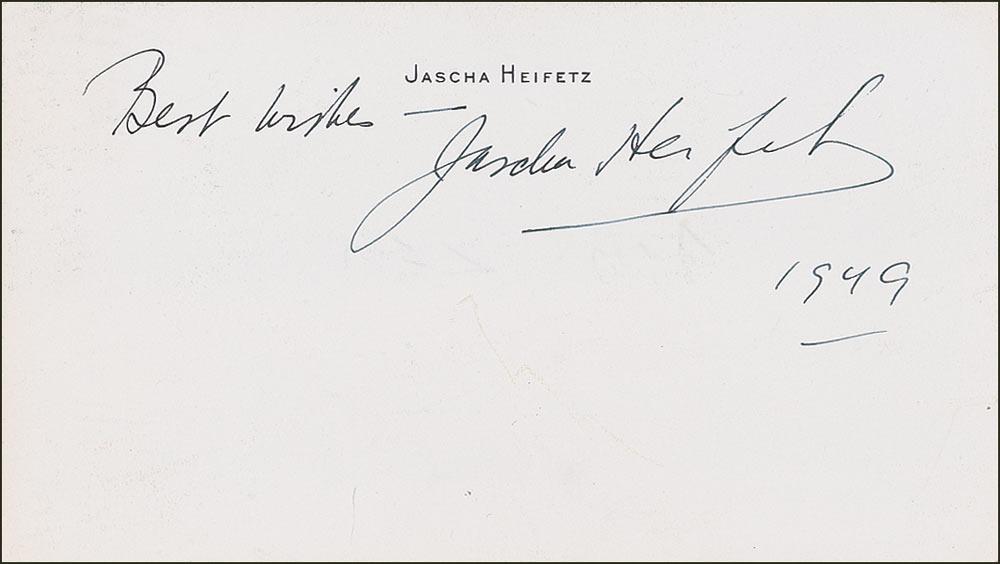 JASCHA HEIFETZ
Best wishes —
Jascha Heifetz
1949